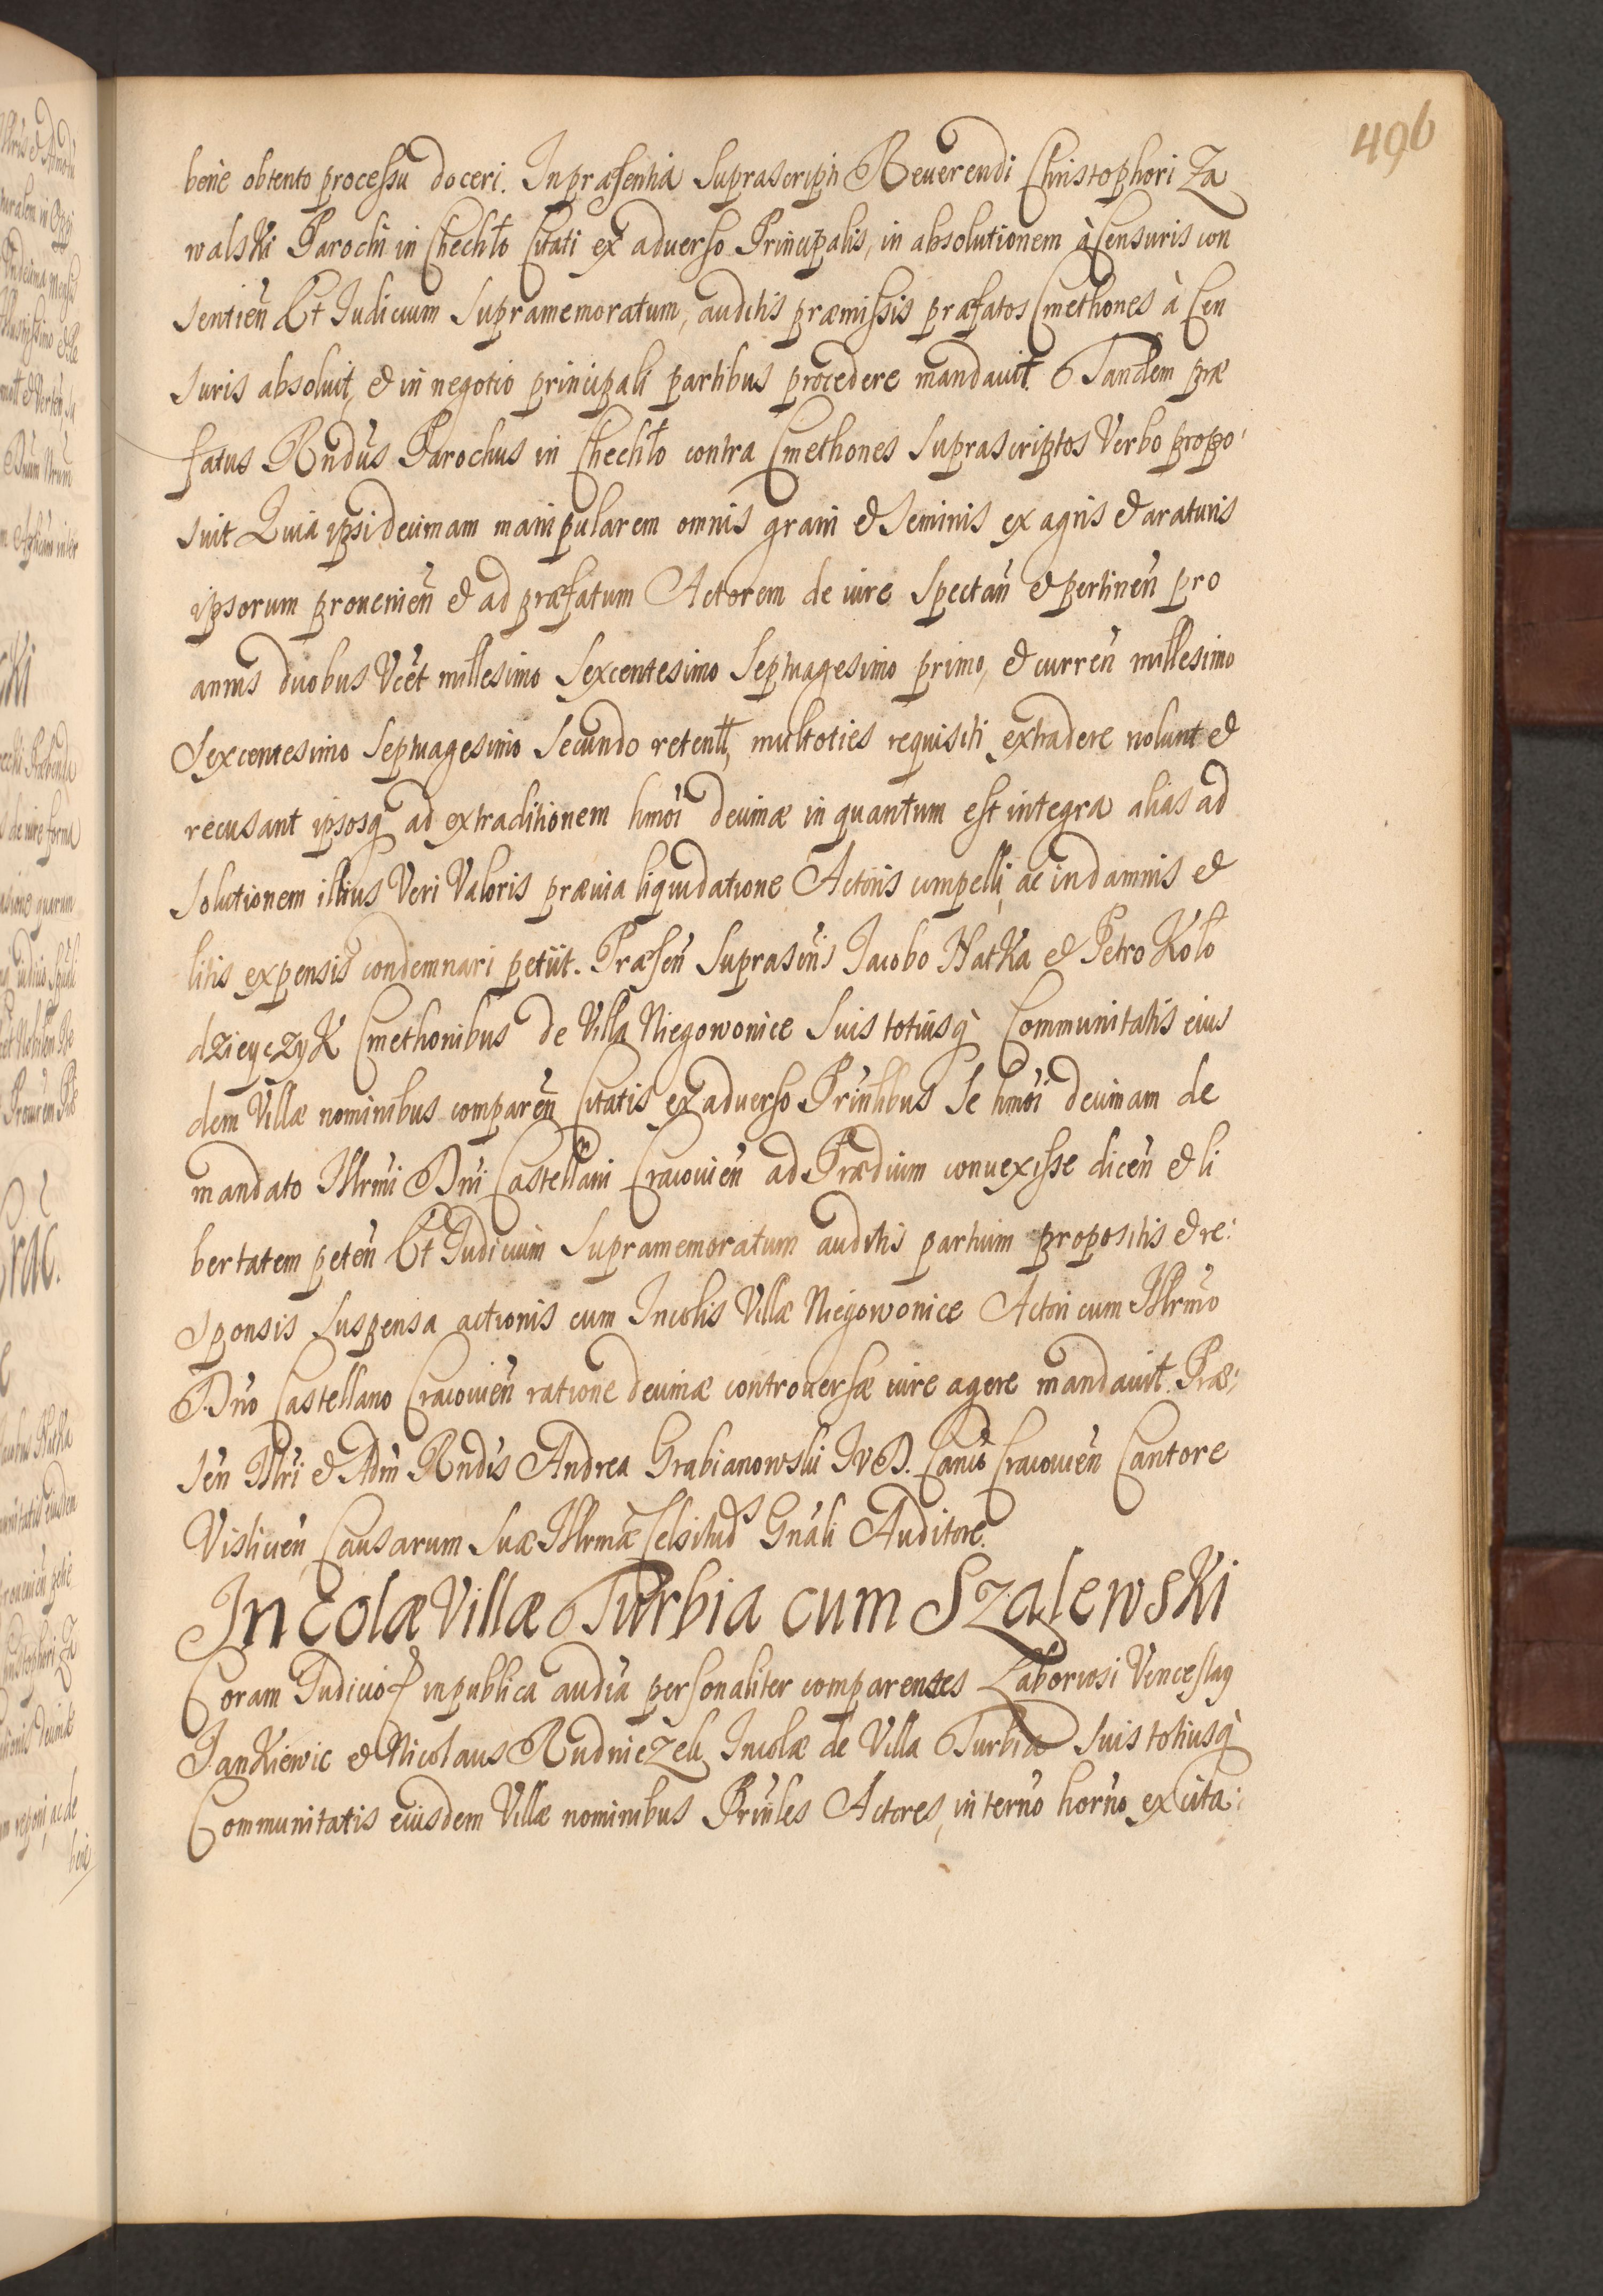 496
bene obtento processu doceri. In præsentia suprascripti Reuerendi Christophori Za
walski Parochi in Chechło Citati ex aduerso Principalis, in absolutionem à Censuris con
sentien̄ Et Iudicium supramemoratum, auditis præmissis præfatos Cmethones à Cen
suris absoluit, & in negotio principali partibus procedere mandauit. Tandem præ
fatus Rndus Parochus in Chechło contra Cmethones suprascriptos Verbo propo:
suit Quia ipsi decimam manipularem omnis grani & seminis ex agris & araturis
ipsorum prouenien̄ & ad præfatum Actorem de iure spectan̄ & pertinen̄ pro
annis duobus Vcet millesimo sexcentesimo septuagesimo primo, & curren̄ millesimo
sexcentesimo septuagesimo secundo retent, multoties requisiti extradere nolunt &
recusant ipsosq ad extraditionem hmoi decimæ in quantum est integra alias ad
solutionem illius Veri Valoris præuia liquidatione Actoris compelli, ac in damnis &
litis expensis condemnari petiit. Præsen̄ suprascris Iacobo Natka & Petro Koło
dzieyczyk Cmethonibus de Villa Niegowonice suis totiusq̀ Communitatis eius
dem Villæ nominibus comparen̄ Citatis ex aduerso Prinlibus se hmoi decimam de
mandato Illrmi Dni Castellani Cracouien̄ ad Prædium conuexisse dicen̄ & li
bertatem peten̄ Et Iudicium supramemoratum auditis partium propositis & re:
sponsis suspensa actionis cum Incolis Villæ Niegowonice Actori cum Illrmo
Dno Castellano Cracouien̄ ratione decimæ controuersæ iure agere mandauit. Præ:
sen̄ Illri & Adm Rndis Andrea Grabianowski IVD. Canco Cracouien̄ Cantore
Vislicien̄ Causarum suæ Illrmæ Celsitud Gnali Auditore.
Incolæ Villæ Turbia cum Szalewski
Coram Iudicio in publica audia personaliter comparentes Laboriosi Venceslaq
Jankiewic & Nicolaus Rudniczek Incolæ de Villa Turbia suis totiusq̀
Communitatis eiusdem Villæ nominibus Prinles Actores, in terno horno ex cita: